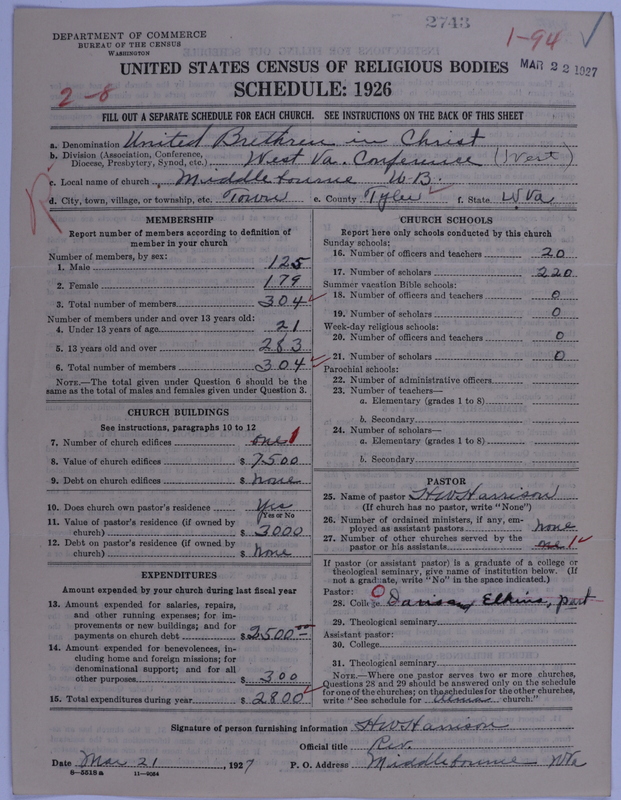 2743
DEPARTMENT OF COMMERCE
BUREAU OF THE CENSUS
WASHINGTON
1-94
MAR 22 1927
UNITED STATES CENSUS OF RELIGIOUS BODIES
2-8
SCHEDULE: 1926
FILL OUT A SEPARATE SCHEDULE FOR EACH CHURCH. SEE INSTRUCTIONS ON THE BACK OF THIS SHEET
a. Denomination United Brethren in Christ
b. Division (Association, Conference, Diocese, Presbytery, Synod, etc.) West Va. Conference
c. Local name of church Middlebourne U.B.
d. City, town, village, or township, etc. Town e. County Tyler f. State W.Va
MEMBERSHIP
Report number of members according to definition of
member in your church
Number of members, by sex:
1. Male 125
2. Female 179
3. Total number of members 304
Number of members under and over 13 years old:
4. Under 13 years of age 21
5. 13 years old and over 283
6. Total number of members 304
NOTE.—The total given under Question 6 should be the
same as the total of males and females given under Question 3.
CHURCH BUILDINGS
See instructions, paragraphs 10 to 12
7. Number of church edifices one 1
8. Value of church edifices $ 7500
9. Debt on church edifices $ none
10. Does church own pastor's residence Yes
(Yes or No
11. Value of pastor's residence (if owned by
church) $ 3000
12. Debt on pastor's residence (if owned by
church) $ None
EXPENDITURES
Amount expended by your church during last fiscal year
13. Amount expended for salaries, repairs,
and other running expenses; for im-
provements or new buildings; and for
payments on church debt $ 2500
14. Amount expended for benevolences, in-
cluding home and foreign missions; for
denominational support; and for all
other purposes $ 300
15. Total expenditures during year $ 2800
CHURCH SCHOOLS
Report here only schools conducted by this church
Sunday schools:
16. Number of officers and teachers 20
17. Number of scholars 220
Summer vacation Bible schools:
18. Number of officers and teachers 0
19. Number of scholars 0
Week-day religious schools:
20. Number of officers and teachers 0
21. Number of scholars 0
Parochial schools:
22. Number of administrative officers
23. Number of teachers—
a. Elementary (grades 1 to 8)
b. Secondary
24. Number of scholars—
a. Elementary (grades 1 to 8)
b. Secondary
PASTOR
25. Name of pastor H W Harrison
(If church has no pastor, write "None")
26. Number of ordained ministers, if any, em-
ployed as assistant pastors none
27. Number of other churches served by the
pastor or his assistants one 1
If pastor (or assistant pastor) is a graduate of a college or
theological seminary, give name of institution below. (If
not a graduate, write "No" in the space indicated.)
Pastor: O
28. College Elkins, part
29. Theological seminary
Assistant pastor:
30. College
31. Theological seminary
NOTE.—Where one pastor serves two or more churches,
Questions 28 and 29 should be answered only on the schedule
for one of the churches; on the schedules for the other churches,
write "See schedule for Alma church."
Signature of person furnishing information H W Harrison
Official title Rev.
Date Mar 21, 1927 P. O. Address Middlebourne WVa
8—5518 a 11—9064